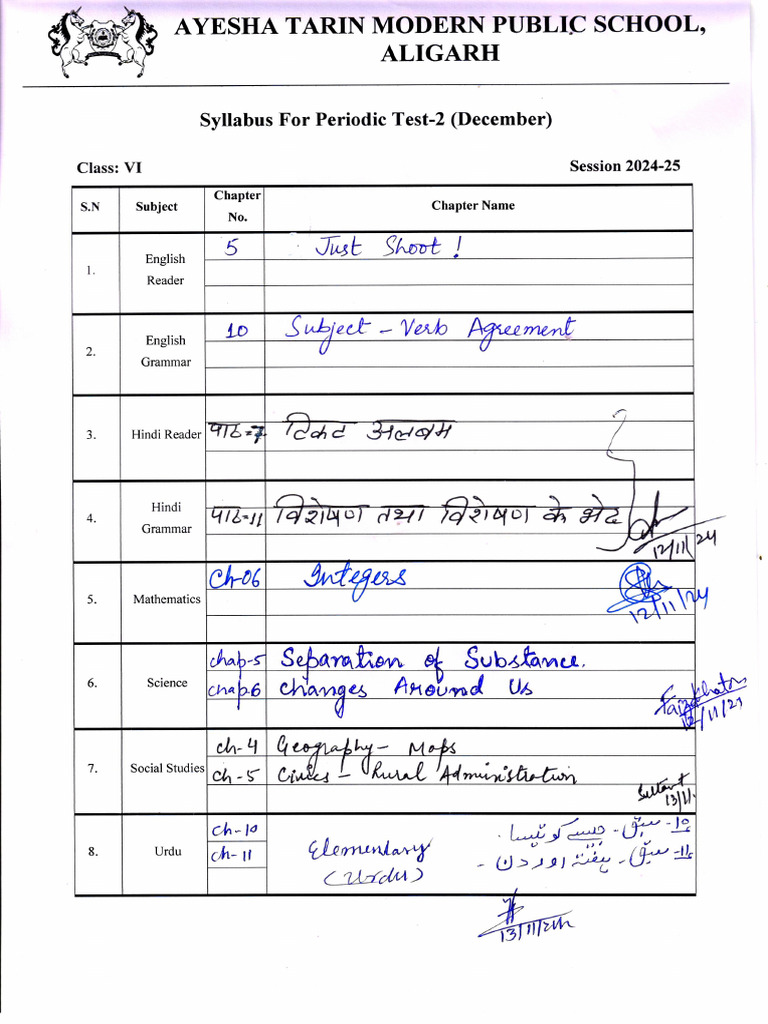 AYESHA TARIN MODERN PUBLIC SCHOOL,
ALIGARH
Syllabus For Periodic Test-2 (December)
Class: VI Session 2024-25
S.N Subject Chapter No. Chapter Name
1. English Reader 5 Just Shoot !
2. English Grammar 10 Subject - Verb Agreement
3. Hindi Reader पाठ-7 टिकट अलबम
4. Hindi Grammar पाठ-11 विशेषण तथा विशेषण के भेद
12/11/24
5. Mathematics Ch-06 Integers
12/11/24
6. Science chap-5 Separation of Substance.
chap-6 Changes Around Us
12/11/21
7. Social Studies ch-4 Geography - Maps
ch-5 Civics - Rural Administration
13/11.
8. Urdu ch-10 Elementary (Urdu) 10- سبق- جیسے کو تیسا.
ch-11 11- سبق- ہفتہ اور دن -
13/11/24